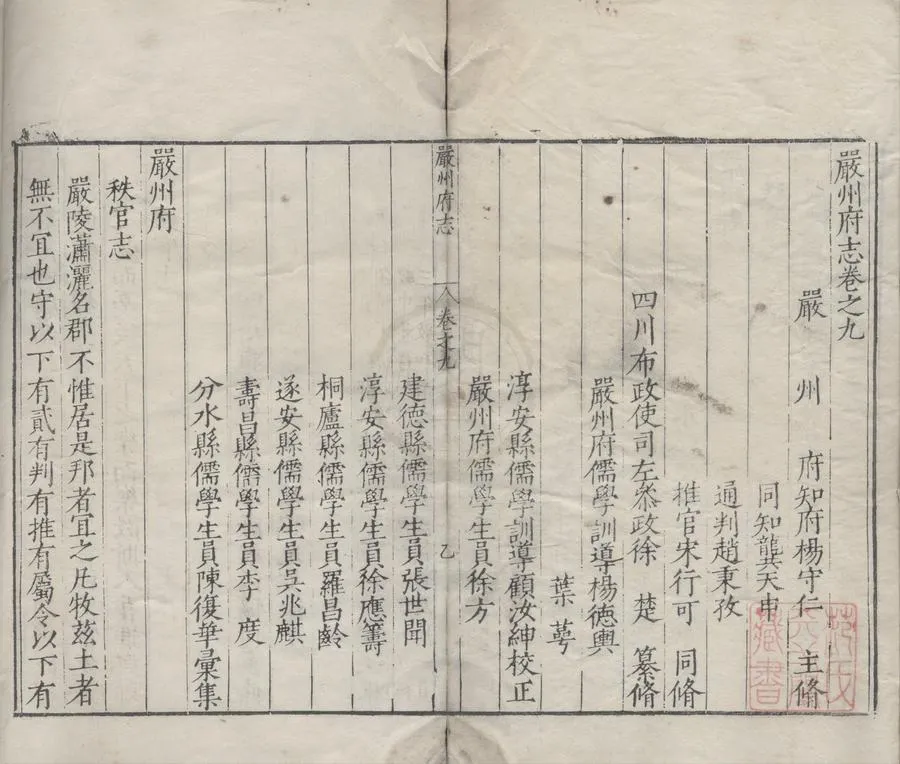 嚴州府志卷之九
嚴州府知府楊守仁主脩
同知龔天申
通判趙秉孜
推官宋行可同脩
四川布政使司左叅政徐楚纂脩
嚴州府儒學訓導楊德輿
葉蕚
淳安縣儒學訓導顧汝紳校正
嚴州府儒學生員徐方
嚴州府志
卷之九
乙
建德縣儒學生員張世聞
淳安縣儒學生員徐應籌
桐廬縣儒學生員羅昌齡
遂安縣儒學生員吳兆麒
壽昌縣儒學生員李度
分水縣儒學生員陳復華彙集
嚴州府
秩官志
嚴陵瀟灑名郡不惟居是邦者宜之凡牧茲土者
無不宜也守以下有貳有判有推有屬令以下有
藏書